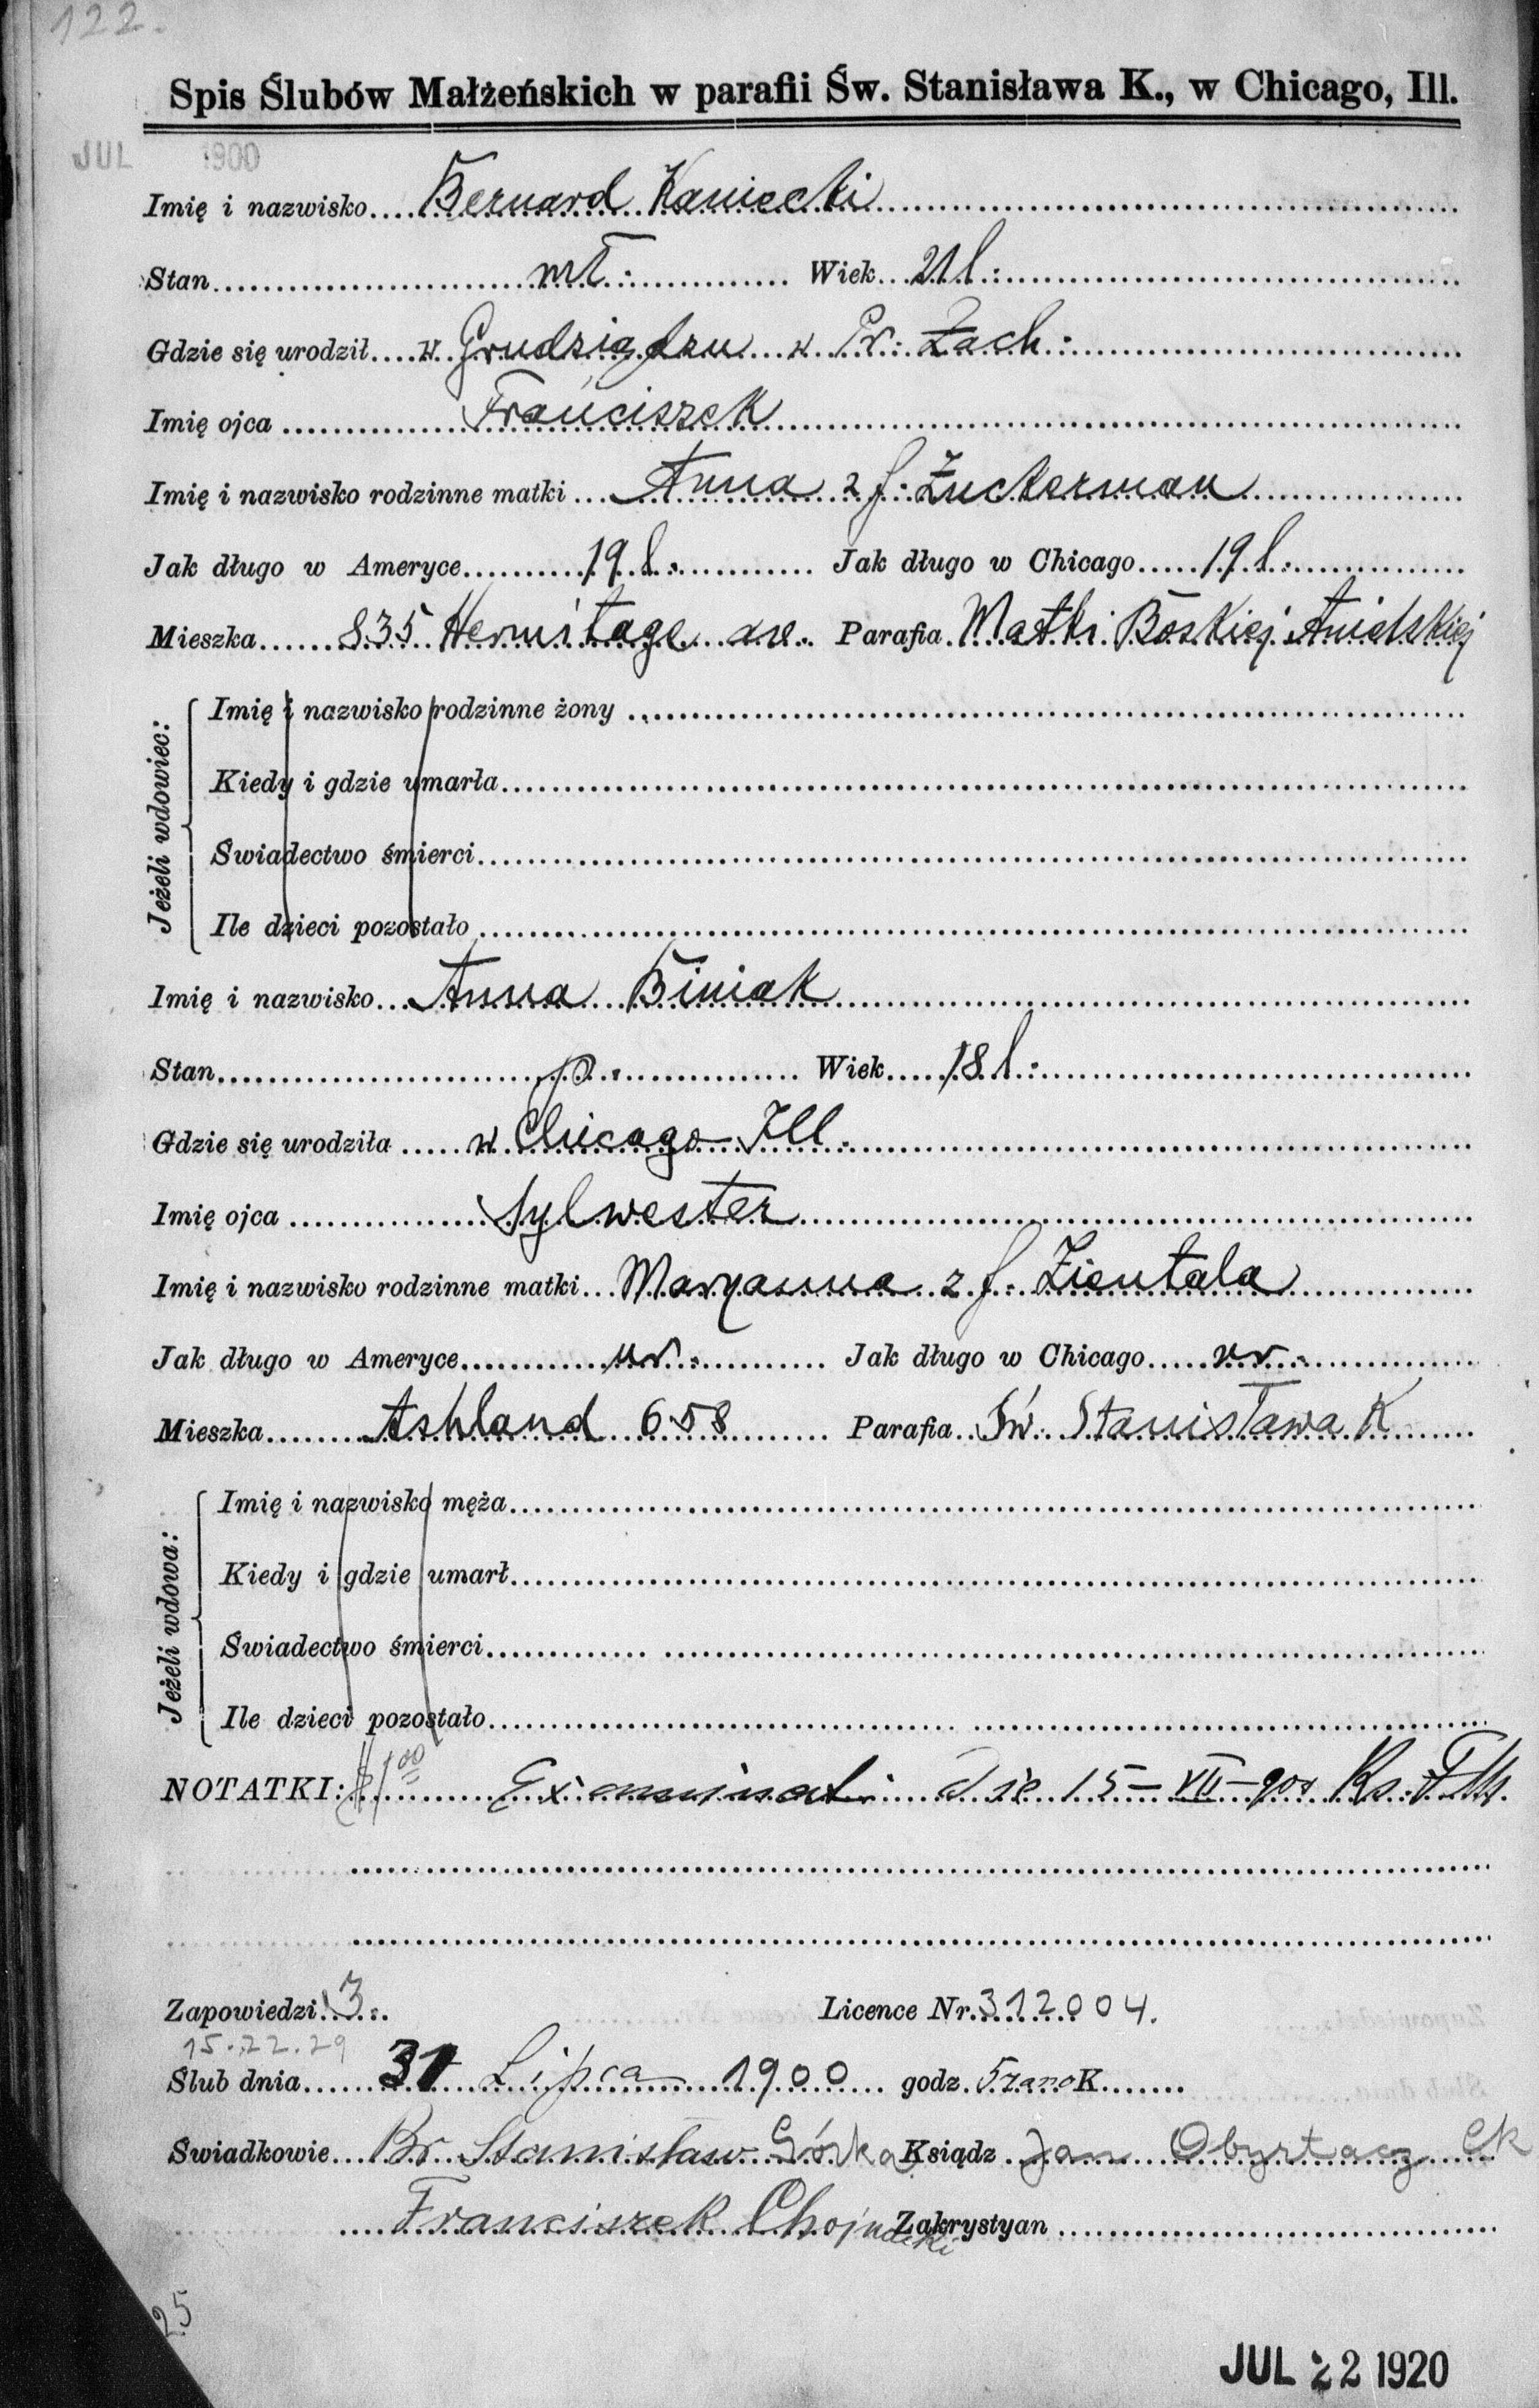 122.
Spis Ślubów Małżeńskich w parafii Św. Stanisława K., w Chicago, Ill.
JUL 1900
Imię i nazwisko Bernard Kaniecki
Stan mł. Wiek 21 l.
Gdzie się urodził w Grudziądzu w Pr. Zach.
Imię ojca Franciszek
Imię i nazwisko rodzinne matki Anna z f. Zuckerman
Jak długo w Ameryce 19 l. Jak długo w Chicago 19 l.
Mieszka 835 Hermitage av. Parafia Matki Boskiej Anielskiej
Jeżeli wdowiec:
Imię i nazwisko rodzinne żony
Kiedy i gdzie umarła
Świadectwo śmierci
Ile dzieci pozostało
Imię i nazwisko Anna Biniak
Stan p. Wiek 18 l.
Gdzie się urodziła w Chicago Ill.
Imię ojca Sylwester
Imię i nazwisko rodzinne matki Maryanna z f. Zientala
Jak długo w Ameryce ur. Jak długo w Chicago ur.
Mieszka Ashland 658 Parafia Św. Stanisława K
Jeżeli wdowa:
Imię i nazwisko męża
Kiedy i gdzie umarł
Świadectwo śmierci
Ile dzieci pozostało
NOTATKI: $1.00 Examinat. die 15–VII–900 Ks.
Zapowiedzi 3. Licence Nr. 312004.
15.22.29
Ślub dnia 31 Lipca 1900 godz. 5 rano K
Świadkowie Br. Stanisław Górka Ksiądz Jan Obyrtacz CR
Franciszek Chojnacki Zakrystyan
25
JUL 22 1920